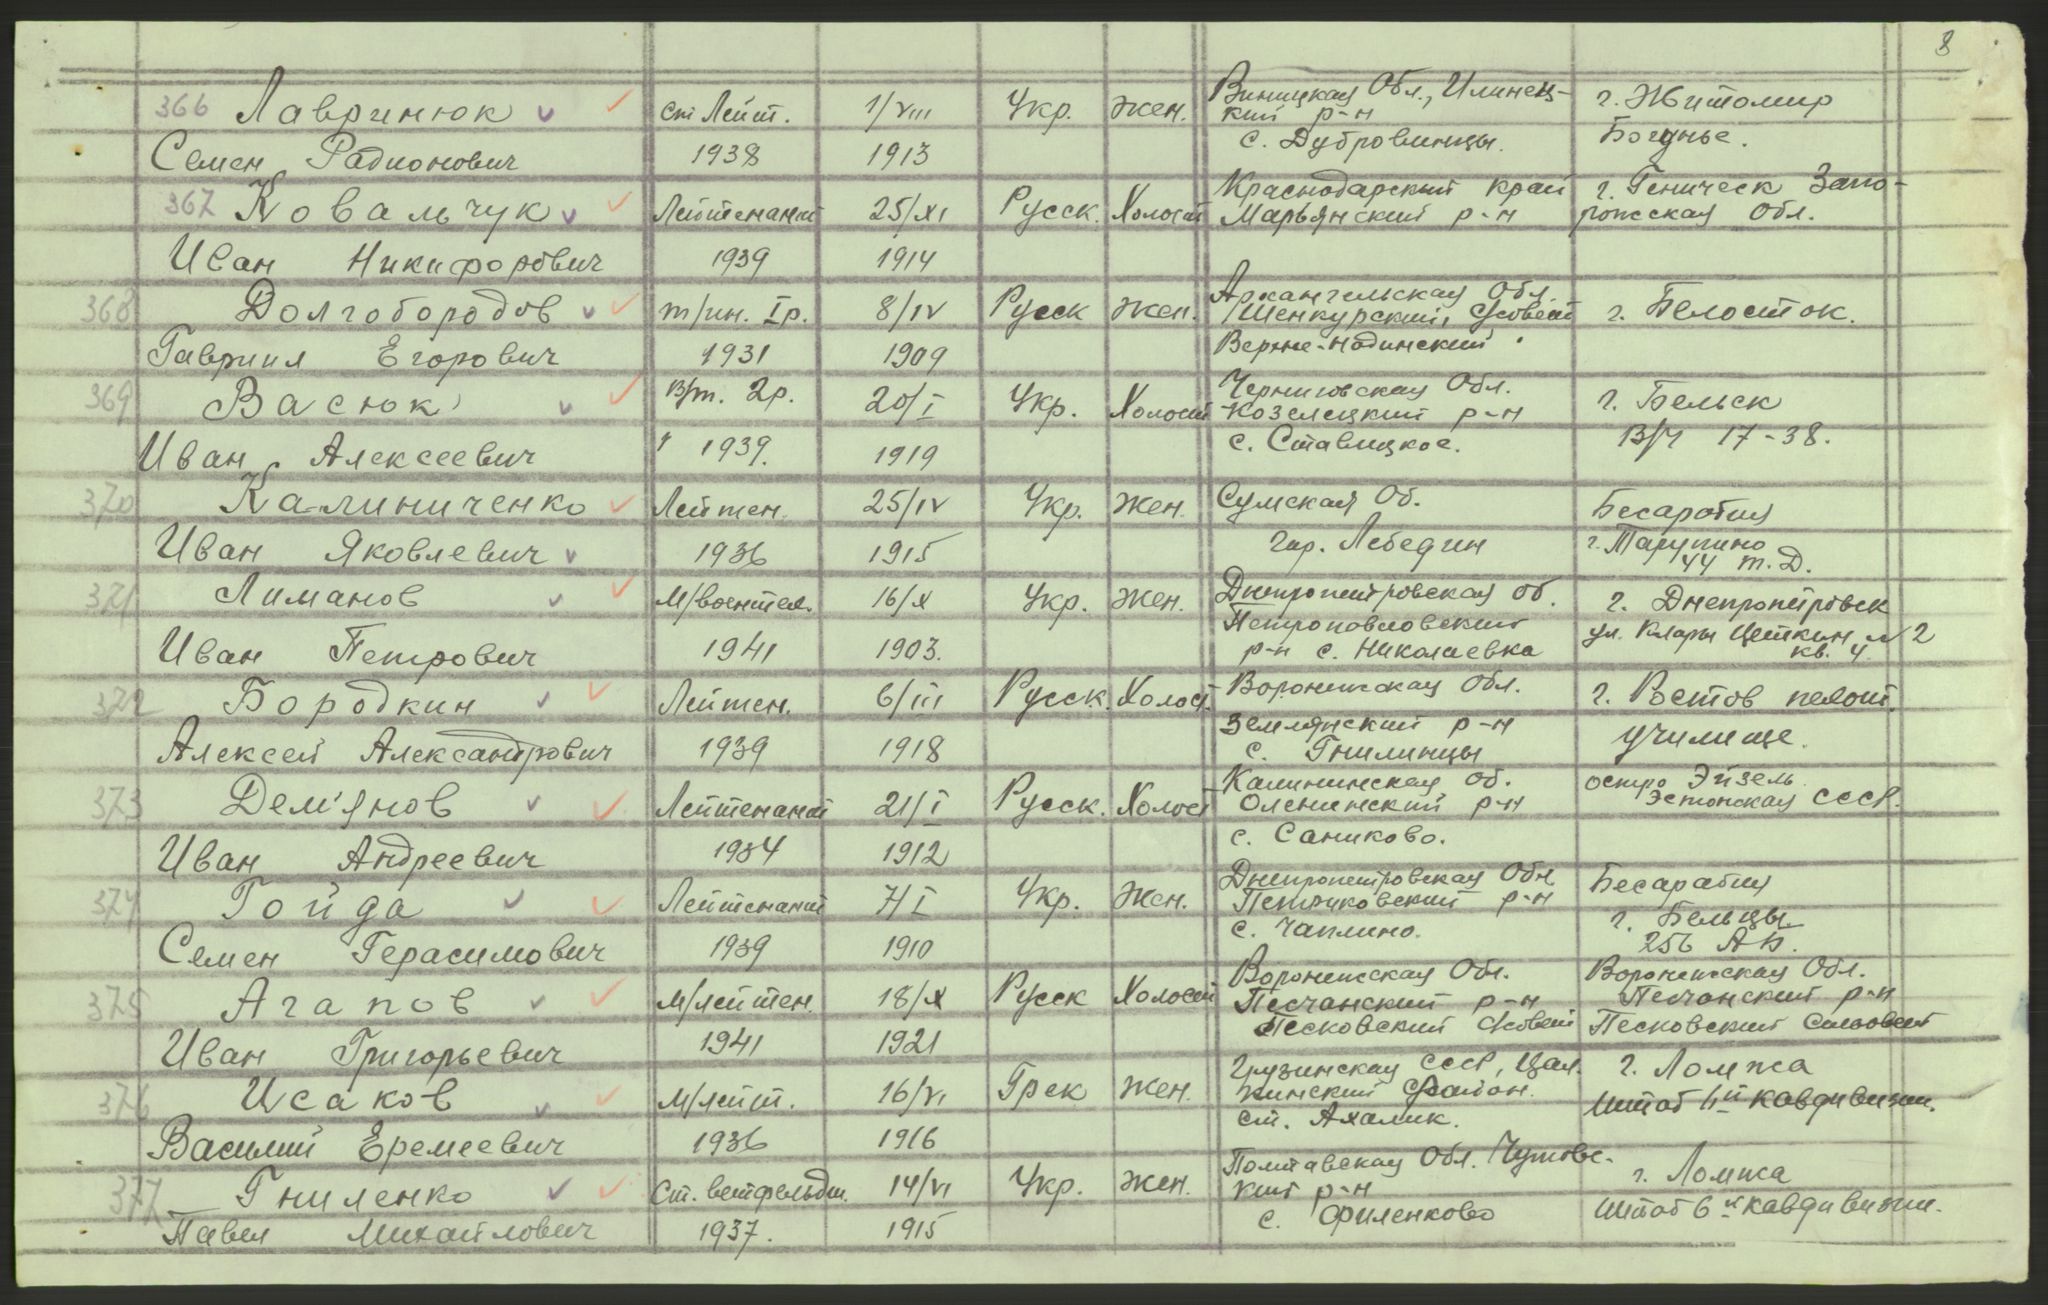 8
366 Лавринюк ст Лейт. 1/VIII Укр. Жен. Виницкая Обл., Илинец- г. Житомир
кий р-н Богунье.
Семен Радионович 1938 1913 с. Дубровинцы.
367 Ковальчук Лейтенант 25/XI Русск. Холост Краснодарский край г. Геническ Запо-
Марьянский р-н рожская Обл.
Иван Никифорович 1939 1914
368 Долгобородов т/ин. Iр. 8/IV Русск Жен. Архангельская Обл. г. Белосток.
Шенкурский, С/совет
Гавриил Егорович 1931 1909 Верхне-
369 Васюк В/т. 2р. 20/I Укр. Холост Черниговская Обл. г. Бельск
Козелецкий р-н
Иван Алексеевич 1939. 1919 с. Ставицкое. В/Ч 17-38.
370 Калиниченко Лейтен. 25/IV Укр. Жен. Сумская Об. Бесарабия
Иван Яковлевич 1936 1915 гор. Лебедин г. Тарупино
44 т.Д.
371 Лиманов М/воентех. 16/X Укр. Жен. Днепропетровская об. г. Днепропетровск
Петропавловский ул. Клары Цеткин, №2
Иван Петрович 1941 1903. р-н с. Николаевка кв. 4.
372 Бородкин Лейтен. 6/III Русск. Холост Воронежская Обл. г. Ростов пехот.
Землянский р-н училище.
Алексей Александрович 1939 1918 с. Гнилинцы
373 Дем'янов Лейтенант 21/I Русск. Холост Калининская об. остро Эйзель
Оленинский р-н Эстонская СССР.
Иван Андреевич 1934 1912 с. Саниково.
374 Гойда Лейтенант 7/I Укр. Жен. Днепропетровская Обл. Бесарабия
Петриковский р-н г. Бельцы.
Семен Герасимович 1939 1910 с. Чаплино. 256 АБ.
375 Агапов М/лейтен. 18/X Русск Холост Воронежская Обл. Воронежская Обл.
Песчанский р-н Песчанский р-н
Иван Григорьевич 1941 1921 Песковский С/совет Песковский Сильсовет
376 Исаков М/лейт. 16/VI Грек Жен. Грузинская СССР, Цал. г. Ломжа
кинский район. Штаб 6й кавдивизии.
Василий Еремеевич 1936 1916 ст. Ахалик.
377 Гниленко Ст. ветфельдш. 14/VI Укр. Жен. Полтавская Обл. Чутовс- г. Ломжа
кий р-н Штаб 6й кавдивизии.
Павел Михайлович 1937. 1915 с. Филенково